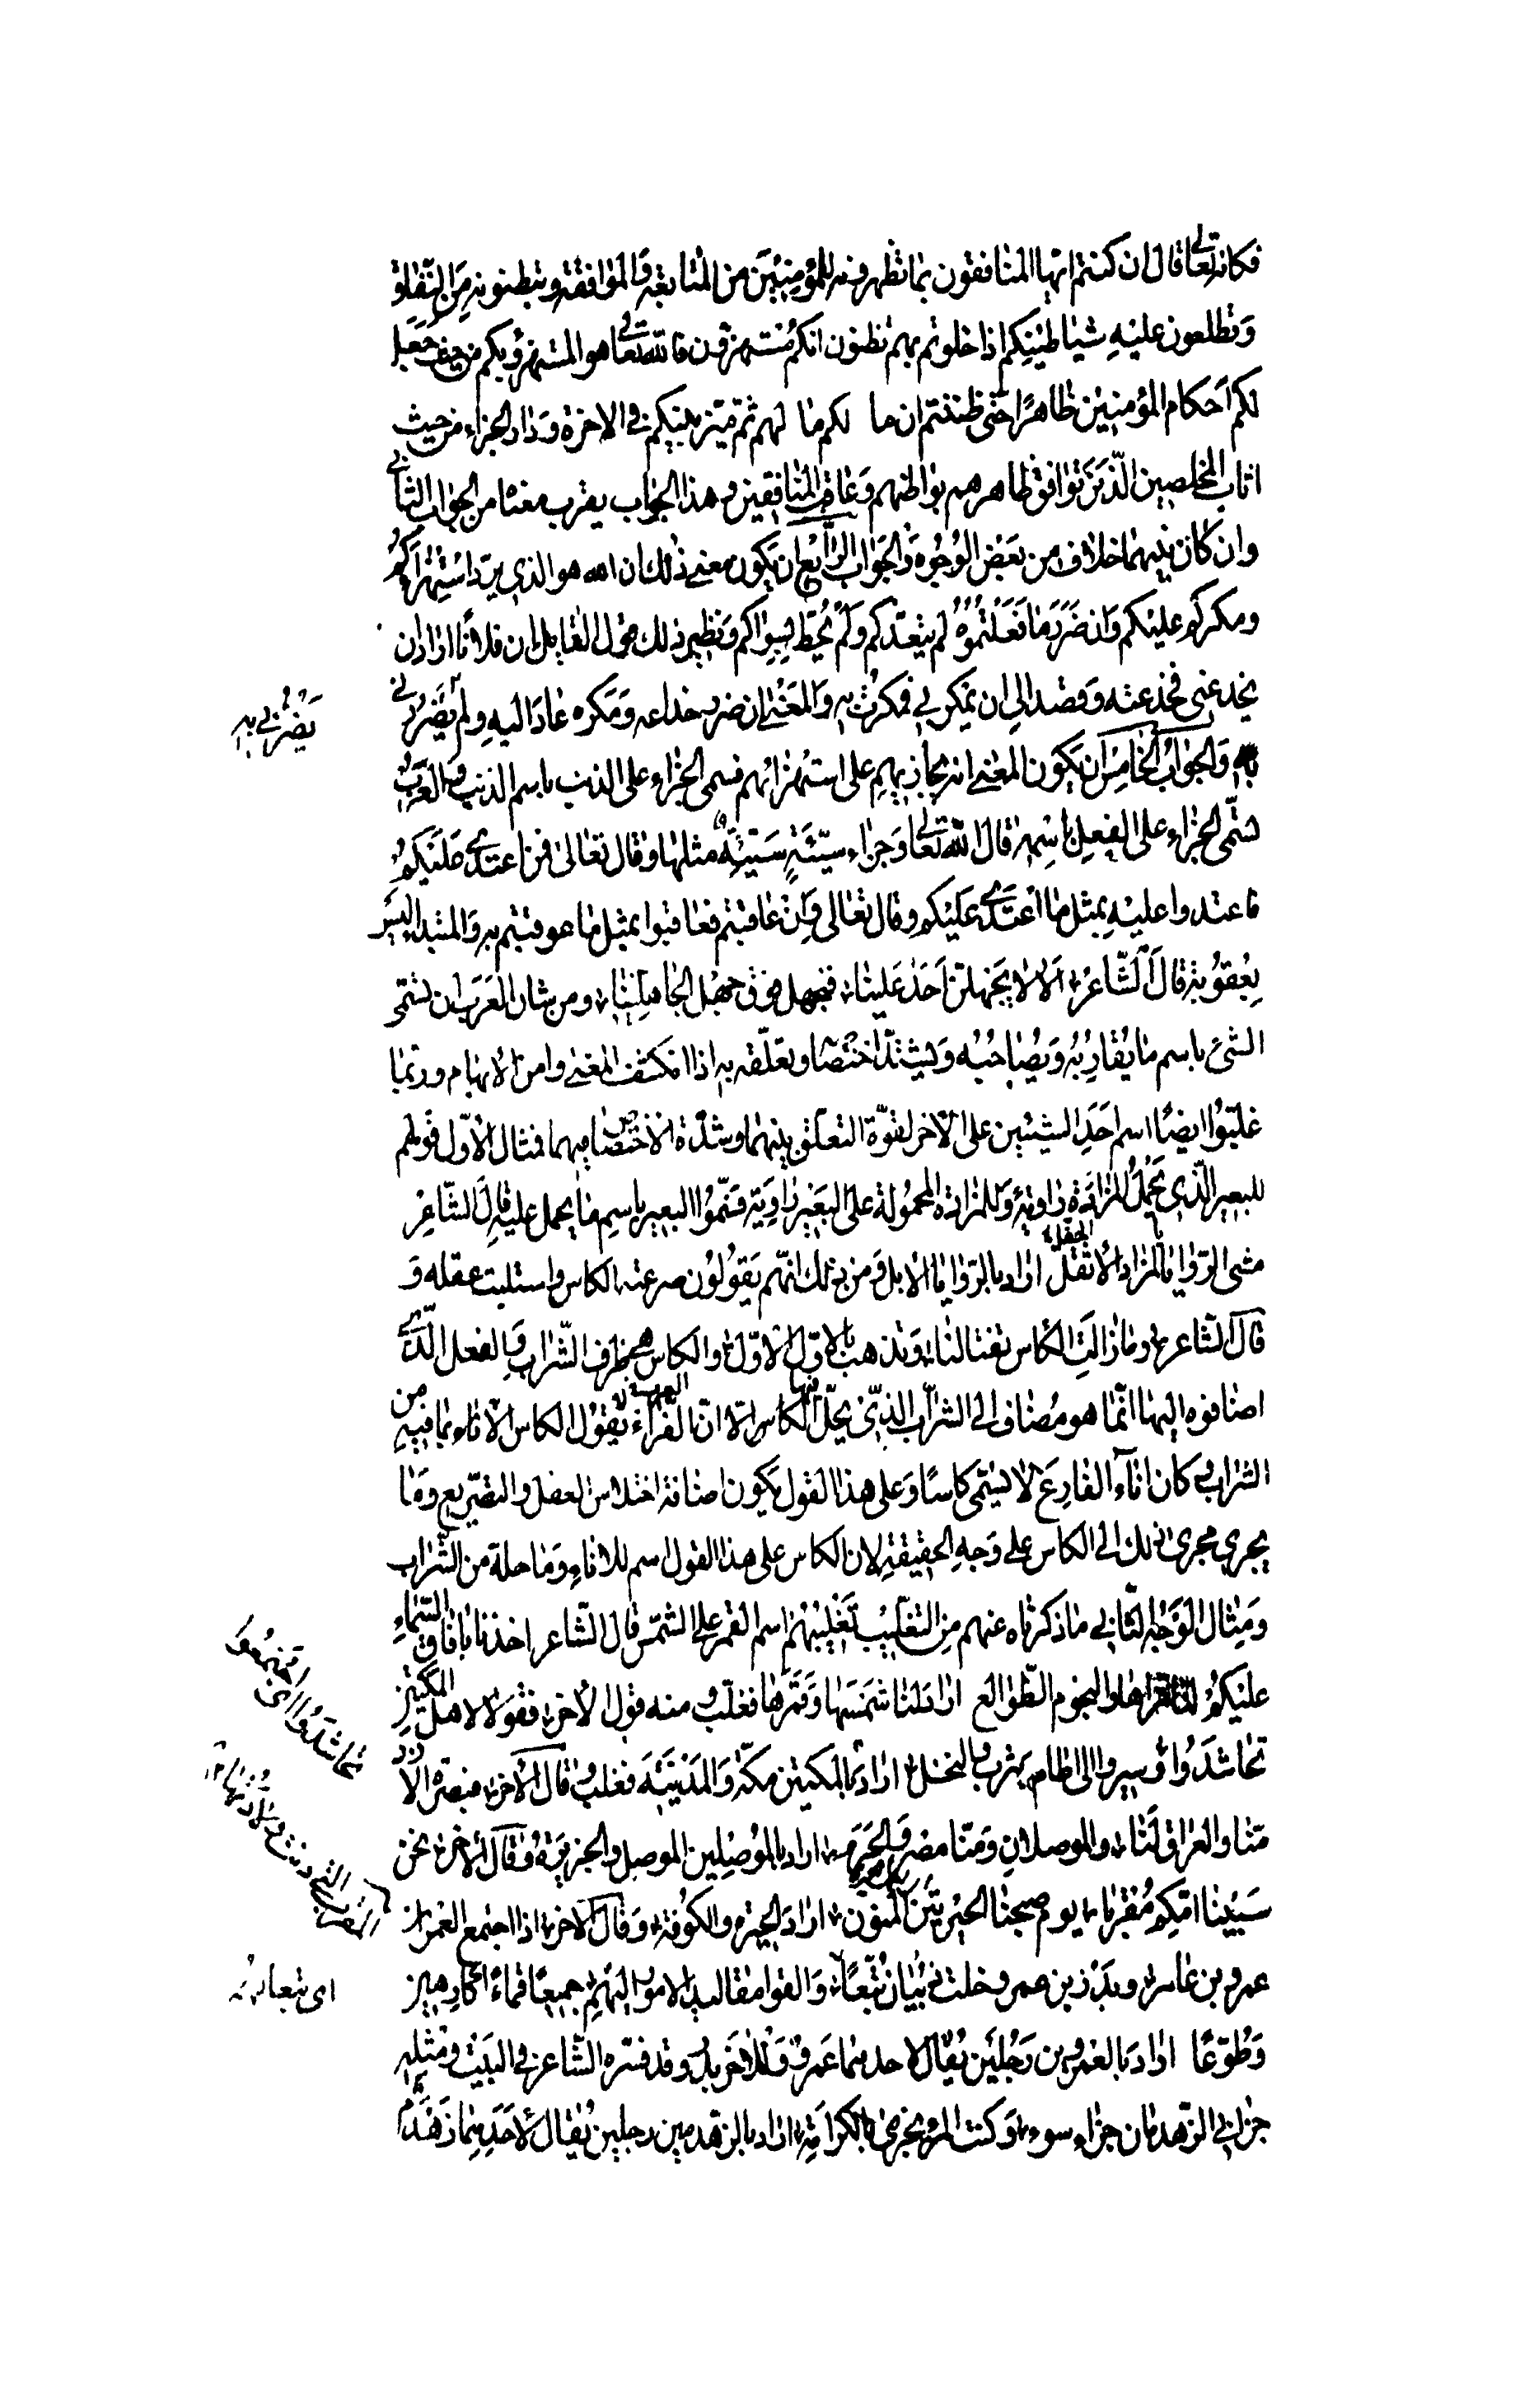 فكانه تعالى قال ان كنتم ايها المنافقون بما تظهرونه للمؤمنين من المتابعة والموافقة وتبطنونه من النفاق
وتطلعون عليه شياطينكم اذا خلوتم بهم تظنون انكم مستهزؤن فالله تعالى هو المستهزؤ بكم من حيث جعل
لكم احكام المؤمنين ظاهرًا حتى ظننتم ان ما لكم ما لهم ثم ميّز بينكم فى الاخرة ودار الجزاء من حيث
اثاب المخلصين الّذين توافق ظاهرهم بواطنهم وعاقب المنافقين وهذا الجواب يقرب معناه من الجواب الثانى
وان كان بينهما خلاف من بعض الوجوه والجواب الرّابع ان يكون معنى ذلك ان الله هو الذى يردّ استهزاءكم
ومكركم عليكم وان ضرر ما فعلتموه لم يتعدّكم ولم يحط بسواكم ونظير ذلك قول القايل ان فلانًا اراد ان
يخدعنى فخدعته وقصد الى ان يمكر بى فمكرت به والمعنى ان ضرر خداعه ومكره عاد اليه ولم يضررنى
به والجواب الخامس ان يكون المعنى انه يجازيهم على استهزائهم فسمى الجزاء على الذنب باسم الذنب والعرب
تسمّى الجزاء على الفعل باسمه قال الله تعالى وجزاء سيّئةٍ سيّئةٌ مثلها وقال تعالى فمن اعتدى عليكم
فاعتدوا عليه بمثل ما اعتدى عليكم وقال تعالى وان عاقبتم فعاقبوا بمثل ما عوقبتم به والمبتدا ليس
بعقوبة قال الشّاعر الا لا يجهلن احد علينا فنجهل فوق جهل الجاهلينا ومن شان العرب ان تسمّى
الشئ باسم ما يقاربه ويصاحبه ويشتدّ اختصاصه وتعلّقه به اذا انكشف المعنى وامن الابهام وربّما
غلّبوا ايضًا اسم احد الشيئين على الاخر لقوّة التعلّق بينهما وشدّة الاختصاص فيهما فمثال الاوّل قولهم
للبعير الّذى يحمل المزادة راوية وللمزادة المحمولة على البعير راوية فسمّوا البعير باسم ما يحمل عليه قال الشّاعر
مشى الرّوايا بالمزاد الاثقل اراد بالرّوايا الابل ومن ذلك انّهم يقولون صرعته الكاس واستلبت عقله و
قال الشّاعر وما زالت الكاس تغتالنا وتذهب بالاوّل الاوّل والكاس هى ظرف الشّراب والفعل الّذى
اضافوه اليها انّما هو مضاف الى الشراب الّذى يحلّ الكاس الّا انّ الفرّاء يقول الكاس الاناء بما فيه من
الشراب وكان اناء الفارغ لا يسمّى كاسًا وعلى هذا القول يكون اضافة اختلاس العقل والتصريع وما
يجرى مجرى ذلك الى الكاس على وجه الحقيقة لان الكاس على هذا القول اسم للاناء وما حله من الشّراب
ومثال الوجه الثّانى ما ذكرناه عنهم من التغليب تغليبهم اسم القمر على الشمس قال الشّاعر اخذنا بافاق السّماء
عليكم لنا قمراها والنجوم الطّوالع اراد لنا شمسها وقمرها فغلّب ومنه قول الاخر فقولا لاهل المكّتين
تحاشدوا وسيروا الى اطام يثرب والنخل اراد بالمكّتين مكّة والمدينة فغلب وقال الاخر فبصرة الازد
منّا والعراق لنا والموصلان ومنّا مصر والحرم اراد بالموصلين الموصل والجزيرة وقال الاخر نحن
سبينا امّكم مقربا يوم صبحنا الحيرتين المنون اراد الحيرة والكوفة وقال الاخر اذا اجتمع العمران
عمرو بن عامر وبدر بن عمرو خلت ذبيان تبّعًا والقوا مقاليد الامور اليهم جميعًا قماءً كارهين
وطوّعًا اراد بالعمرين رجلين يقال لاحدهما عمرو وللاخر بدر وقد فسّره الشّاعر فى البيت ومثله
جزانى الزّهدمان جزاء سوء وكنت المرء يجزى بالكرامة اراد بالزهدمين رجلين يقال لاحدهما زهدم
يضرنى به
تحاشدوا اى اجتمعوا
اى تبعا له